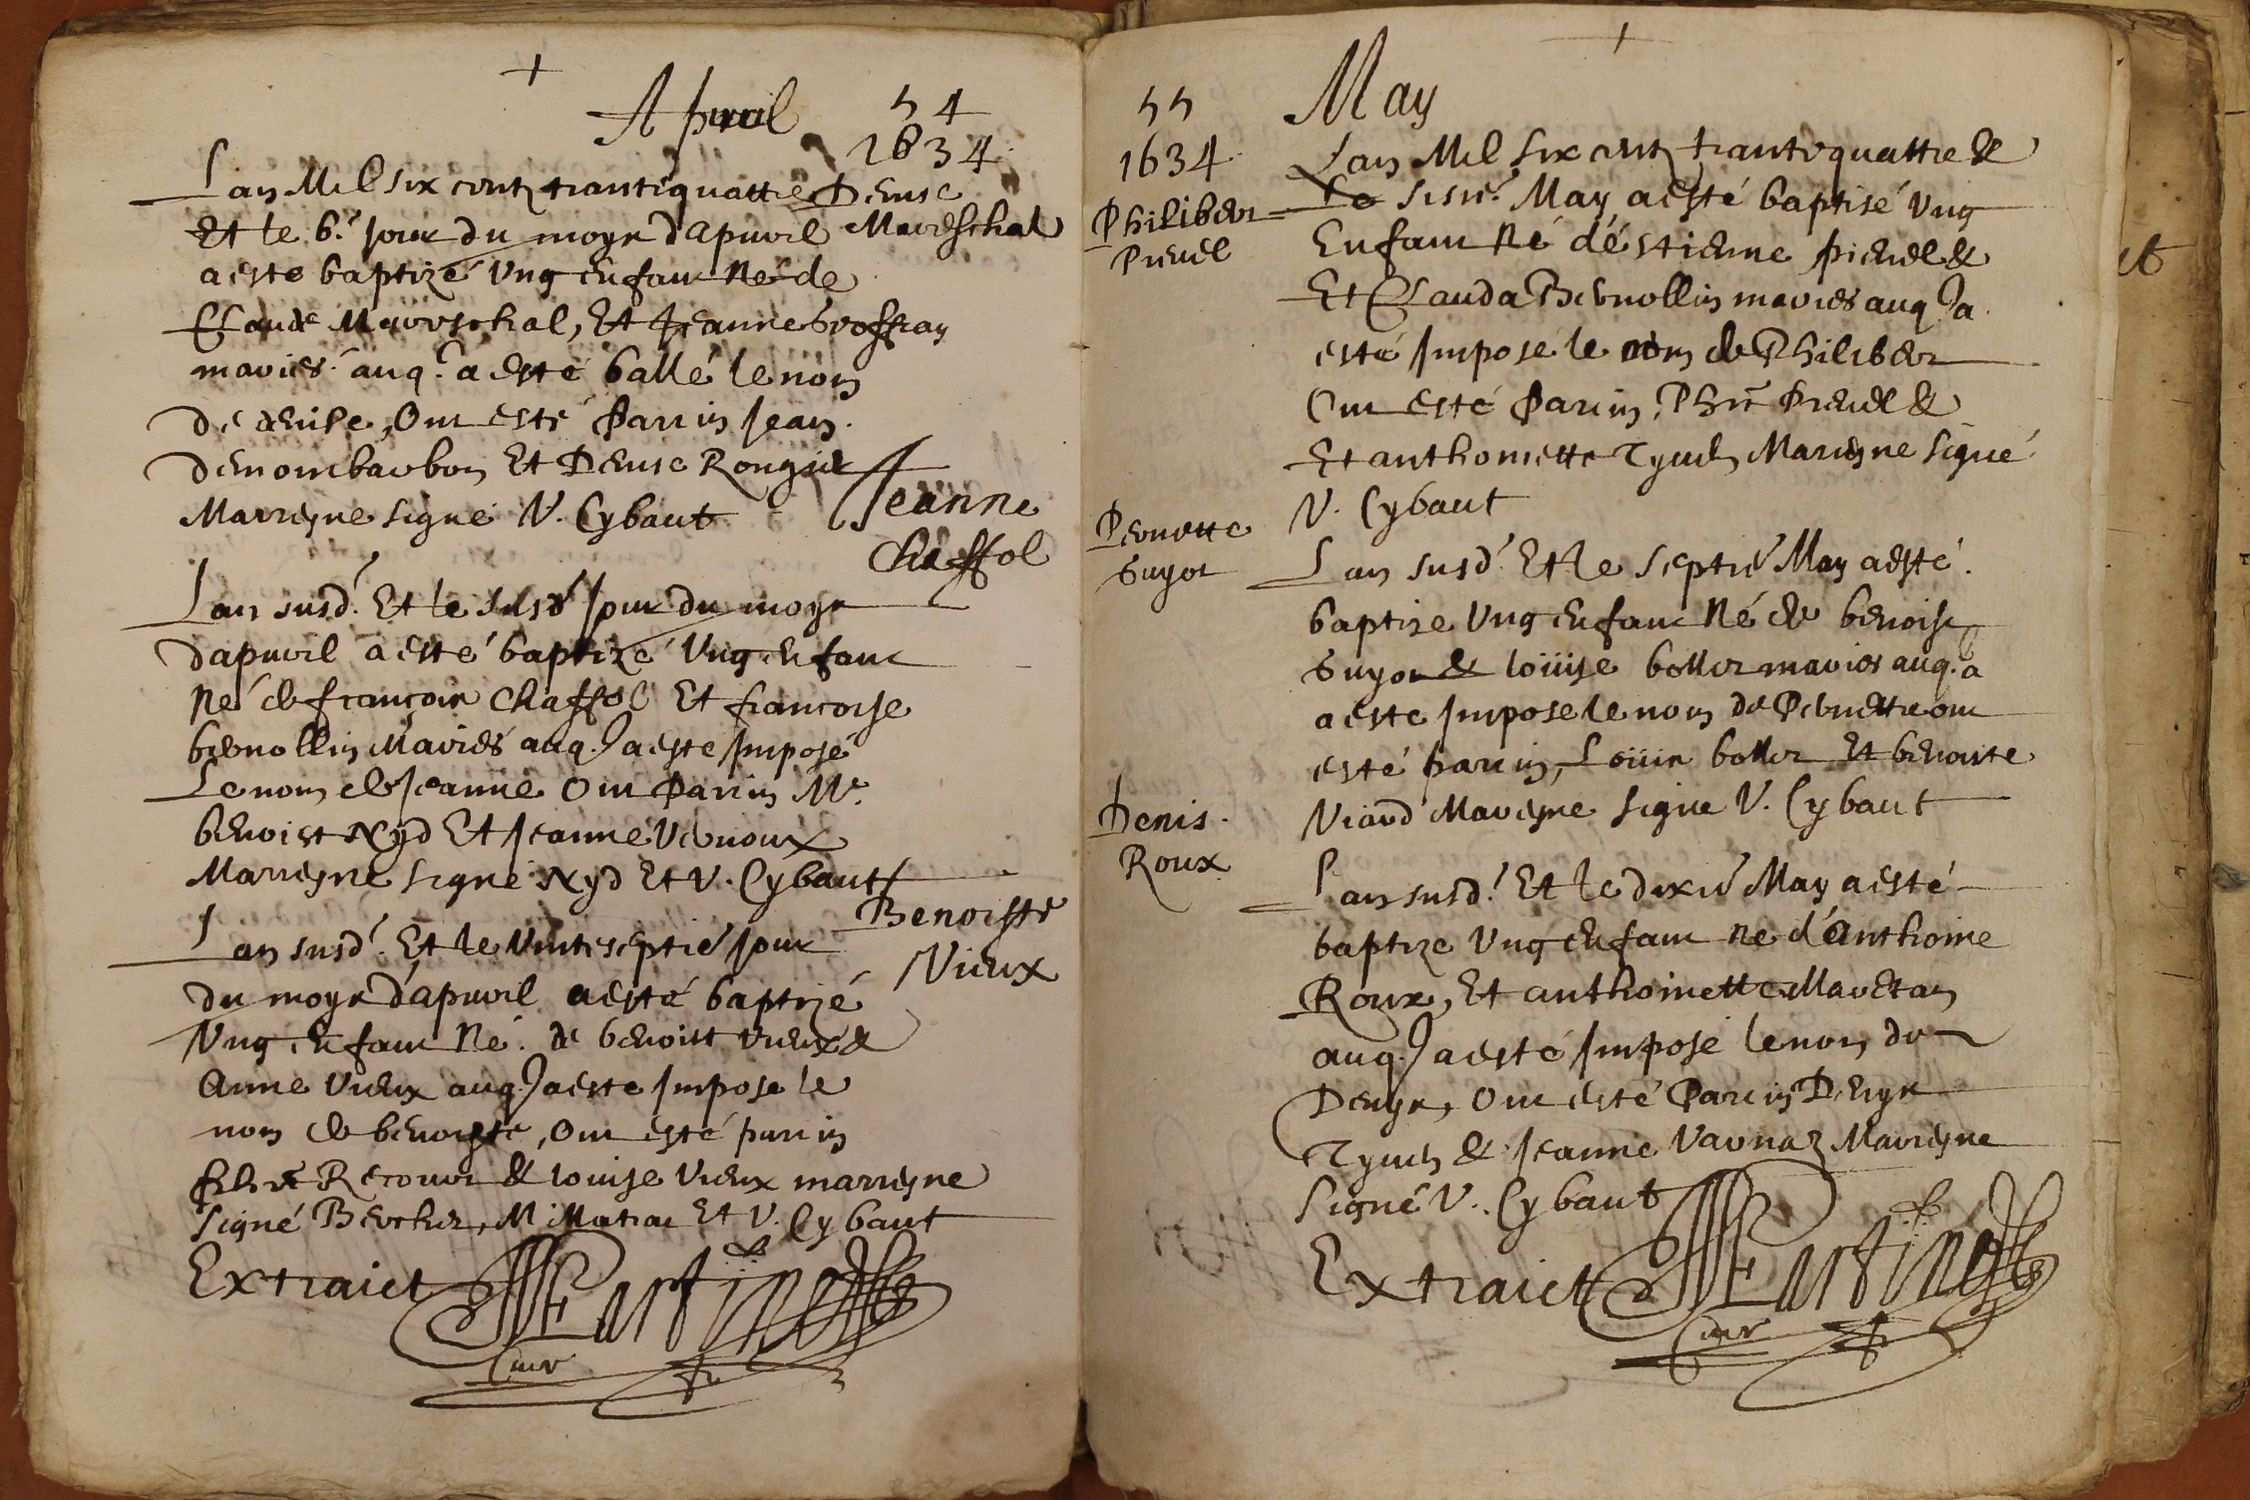 Apuril
54
1634
Lan Mil six centz trantequattre
Denise
Mareschal
Et le 6.e jour du moys dapuvril
a esté baptizé Ung enfant Né de
Claude Mareschal, Et Jeanne
mariés auq.l a esté ballé le nom
de denise, Ont esté Parrin Jean
Et Denise Rongier
Marreyne signé V. Cybaut
Jeanne
Chaffol
Lan susd. Et le susd jour du moys
dapuvril a esté baptizé Ung enfant
Né de françois Chaffol Et francoise
bernollin Mariés auq.l a esté Imposé
Le nom de Jeanne Ont Parrin Me.
benoist Nyd Et Jeanne Vernoux
Marreyne signé Nyd Et V. Cybaut
Benoiste
Vieux
Lan susd. Et le Vintiseptié jour
du moys d'apuvril a esté baptizé
Ung enfant Né de benoist vieux &
Anne Vieux auq.l a esté Imposé le
nom de benoiste, Ont esté parrin
& louise Vieux marreyne
Signé Bercher, M. Et V. Cybaut
Extraict
Curé
55
1634
May
Philiber
Prevel
Lan Mil six centz trantequattre &
Le sisié. May a esté baptisé Ung
Enfant Né d'éstienne prevel &
Et Clauda Bernollin mariés auq.l a
esté Imposé le nom de Philiber
Ont esté Parrin, Phi Prevel &
Et anthoinette Marreyne Signé
V. Cybaut
Pernette
Guyot
Lan susd. Et le septié May a esté
baptize Ung enfant Né de benoist
Guyot & loüise mariés auq.l a
a esté Imposé le nom de Pernette ont
esté parrin, Loüis Et benoiste
Viard Mareyne Signe V. Cybaut
Denis
Roux
Lan susd. Et le dixié May a esté
baptize Ung enfant Ne d'Anthoine
Roux, Et anthoinette Maretan
auq.l a esté Imposé le nom de
Denys, Ont esté Parrin Denys
& Jeanne Varnaz Mareyne
Signé V. Cybaut
Extraict
Curé